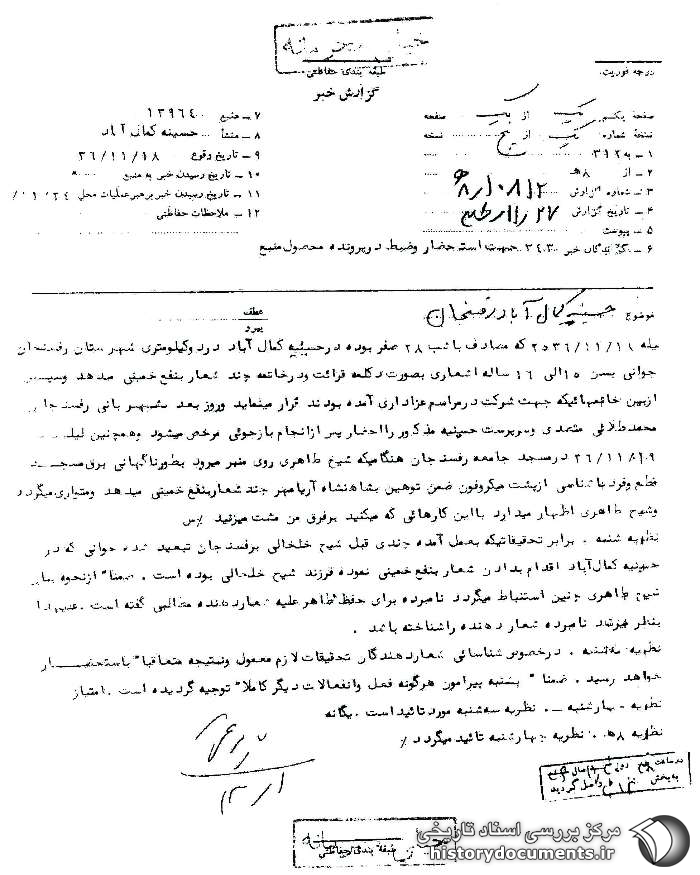 خیلی محرمانه
طبقه بندی حفاظتی
درجه فوریت
گزارش خبر
صفحه یکم از یک صفحه
نسخه شماره از پنج نسخه
۱ - به ۳۱۲
۲ - از ۸ﻫ
۳ - شماره گزارش
۴ - تاریخ گزارش
۵ - پیوست
۶ - گیرندگان خبر ۳۴۳۰ جهت استحضار وضبط در پرونده محصول منبع
۷ - منبع ۱۳۹۶۴۰
۸ - منشأ حسینه کمال آباد
۹ - تاریخ وقوع ۳۶/۱۱/۱۸
۱۰ - تاریخ رسیدن خبر به منبع
۱۱ - تاریخ رسیدن خبر برهبر عملیات محل
۱۲ - ملاحظات حفاظتی
موضوع حسینیه کمال آباد رفسنجان
عطف
پیرو
۲۵۳۶/۱۱/۱۸ که مصادف باشب ۲۸ صفر بوده در حسینیه کمال آباد در دو کیلومتری شهرستان رفسنجان
جوانی بسن ۱۵ الی ۱۶ ساله اشعاری بصورت دکلمه قرائت ودرخاتمه چند شعار بنفع خمینی میدهد وسپس
ازبین خانمهائیکه جهت شرکت درمراسم عزاداری آمده بودند فرار مینماید وروز بعد شهربانی رفسنجان
محمد طلائی متصدی وسرپرست حسینیه مذکور رااحضار پس ازانجام بازجوئی مرخص میشود وهمچنین لیله
۳۶/۱۱/۱۹ درمسجد جامعه رفسنجان هنگامیکه شیخ طاهری روی منبر میرود بطورناگهانی برق مسجد
قطع وفرد ناشناسی ازپشت میکروفون ضمن توهین بشاهنشاه آریامهر چند شعاربنفع خمینی میدهد ومتواری میگردد
وشیخ طاهری اظهار میدارد بااین کارهائی که میکنید برفرق من مشت میزنید
نظریه شنبه . برابر تحقیقاتیکه بعمل آمده چندی قبل شیخ خلخالی برفسنجان تبعید شده جوانی که در
حسینیه کمال آباد اقدام بدادن شعار بنفع خمینی نموده فرزند شیخ خلخالی بوده است . ضمنا" ازنحوه بیان
شیخ طاهری چنین استنباط میگردد نامبرده برای حفظ ظاهر علیه شعاردهنده مطالبی گفته است .
بنظر میرسد نامبرده شعار دهنده راشناخته باشد .
نظریه سهشنبه . درخصوص شناسائی شعاردهندگان تحقیقات لازم معمول ونتیجه متعاقبا" باستحضار
خواهد رسید . ضمنا " بشنبه پیرامون هرگونه فعل وانفعالات دیگر کاملا" توجیه گردیده است . امتیاز
نظریه چهارشنبه - . نظریه سه شنبه مورد تائید است . یگانه
نظریه ۸ﻫ . نظریه چهارشنبه تائید میگردد
طبقه بندی حفاظتی
مرکز بررسی اسناد تاریخی
historydocuments.ir